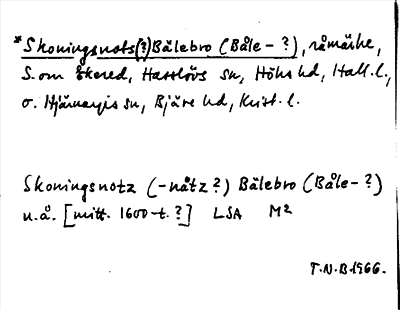 *Skoningsnots(?) Bälebro (Båle- ?), råmärke,
S. om Åkered, Hasslövs sn, Höks hd, Hall. l.,
o. Hjärnarps sn, Bjäre hd, Krist. l.
Skoningsnotz (-nåtz?) Bälebro (Båle- ?)
u.å. [mitt. 1600-t. ?] LSA M2
T.N.B. 1966.